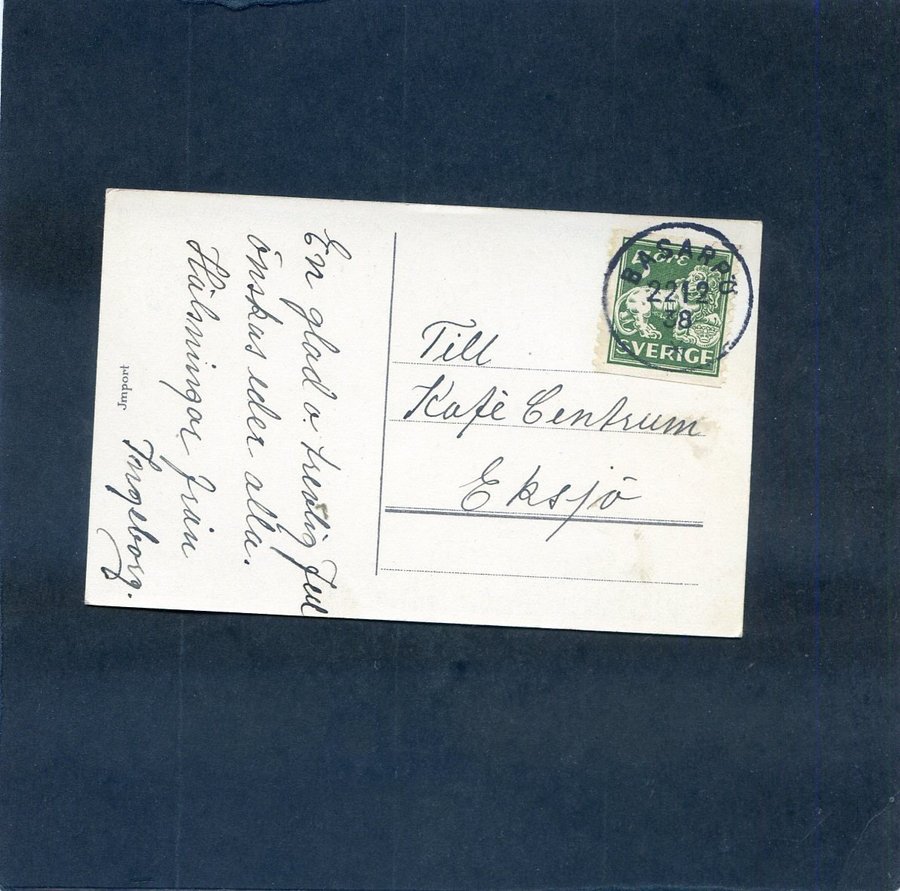 En glad o. trevlig Jul
önskas eder alla.
Hälsningar från
Ingeborg.
Jmport
BASARPÖ
22 12
38
5 ÖRE
SVERIGE
Till
Kafé Centrum
Eksjö